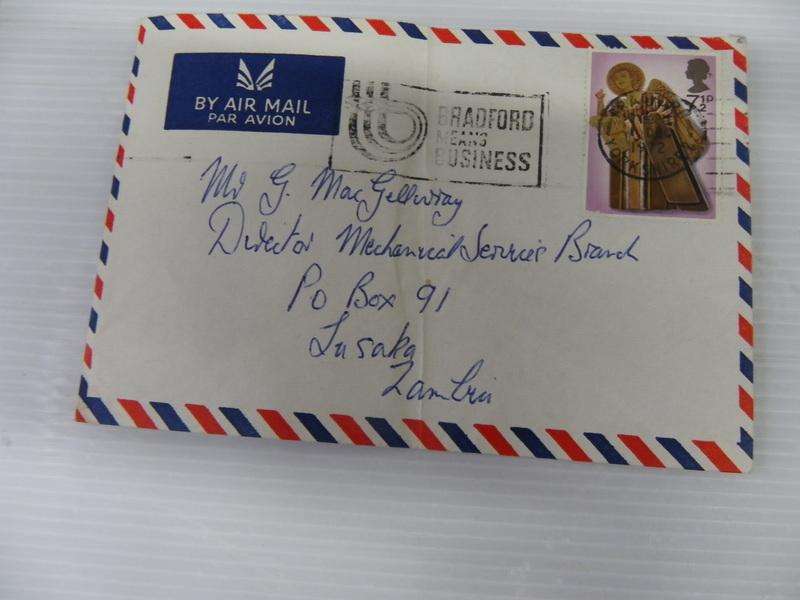 BY AIR MAIL
PAR AVION
BRADFORD
MEANS
BUSINESS
7½P
Mr G. MacGellivray
Director Mechanical Services Branch
PO Box 91
Lusaka
Zambia